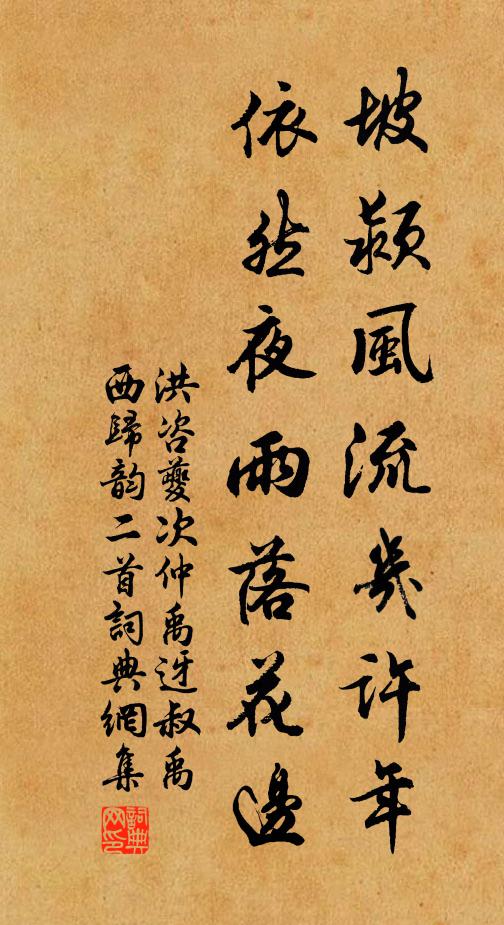 坡颍風流幾許年
依然夜雨落花邊
洪咨夔次仲禹迓叔禹
西歸韵二首詞典網集
詞典
网印